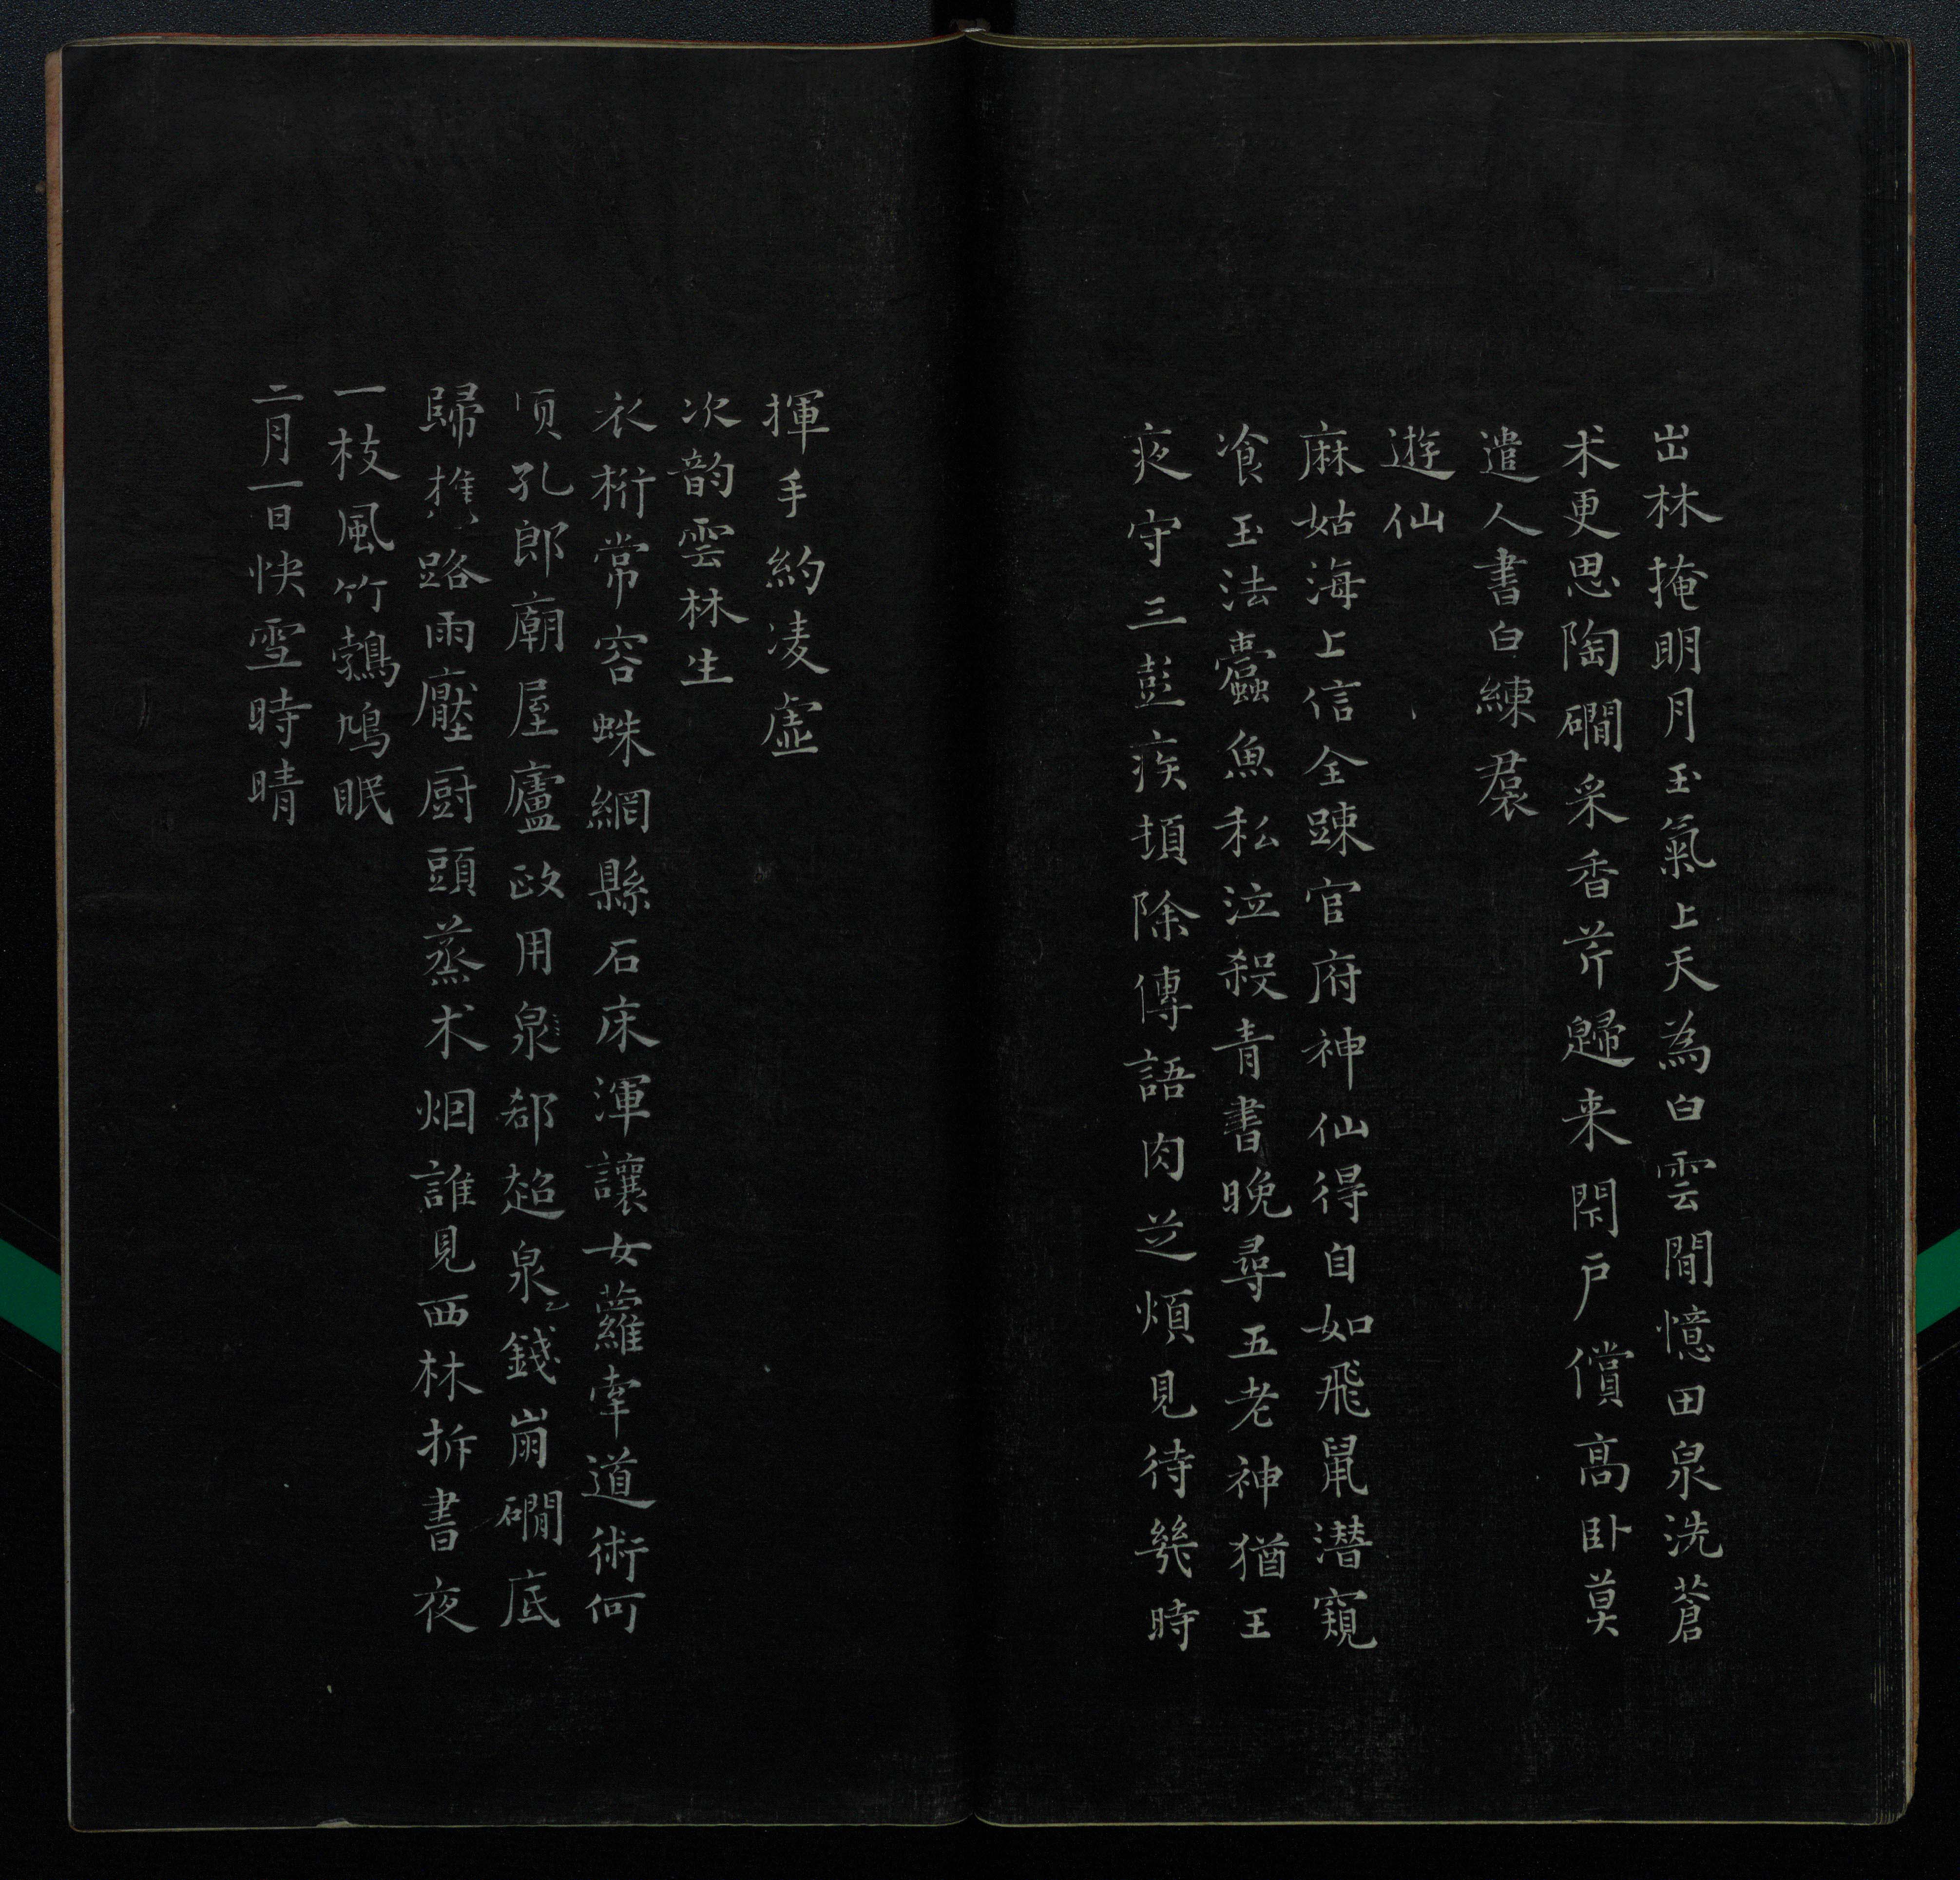 出林掩明月玉氣上天為白雲閒憶田泉洗蒼
朮更思陶磵采香芹歸来閇戶償高卧莫
遣人書白練裠
遊仙
麻姑海上信全踈官府神仙得自如飛鼠潜窺
飡玉法蠹魚私泣殺青書晚尋五老神猶王
夜守三彭疾頓除傳語肉芝煩見待幾時
揮手約凌虛
次韵雲林生
衣桁常容蛛網縣石床渾讓女蘿牽道術何
須孔郎廟屋廬政用泉郗超泉錢崩磵底
歸樵路雨壓厨頭蒸朮烟誰見西林拆書夜
一枝風竹鵓鳩眠
二月一日快雪時晴